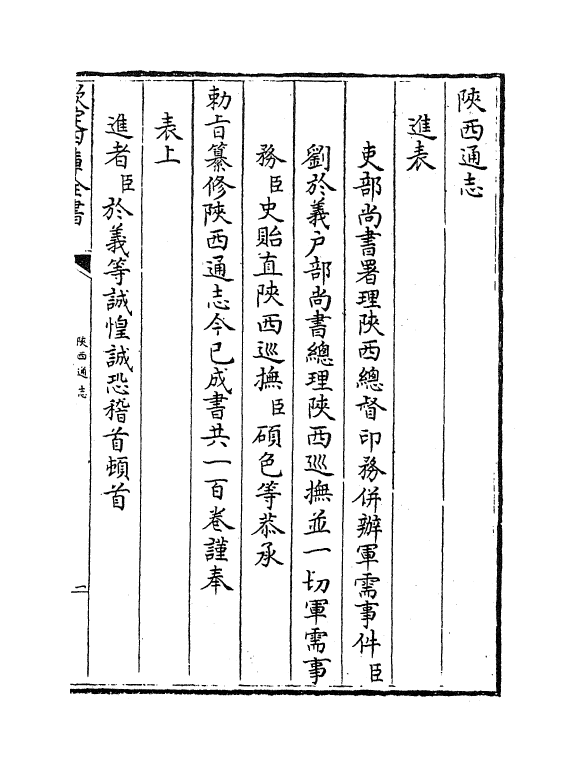 陜西通志
進表
吏部尚書署理陜西總督印務併辦軍需事件臣
劉於義户部尚書總理陜西巡撫並一切軍需事
務臣史貽直陜西巡撫臣碩色等恭承
勅旨纂修陜西通志今已成書共一百卷謹奉
表上
進者臣於義等誠惶誠恐稽首頓首
欽定四庫全書
陜西通志
二